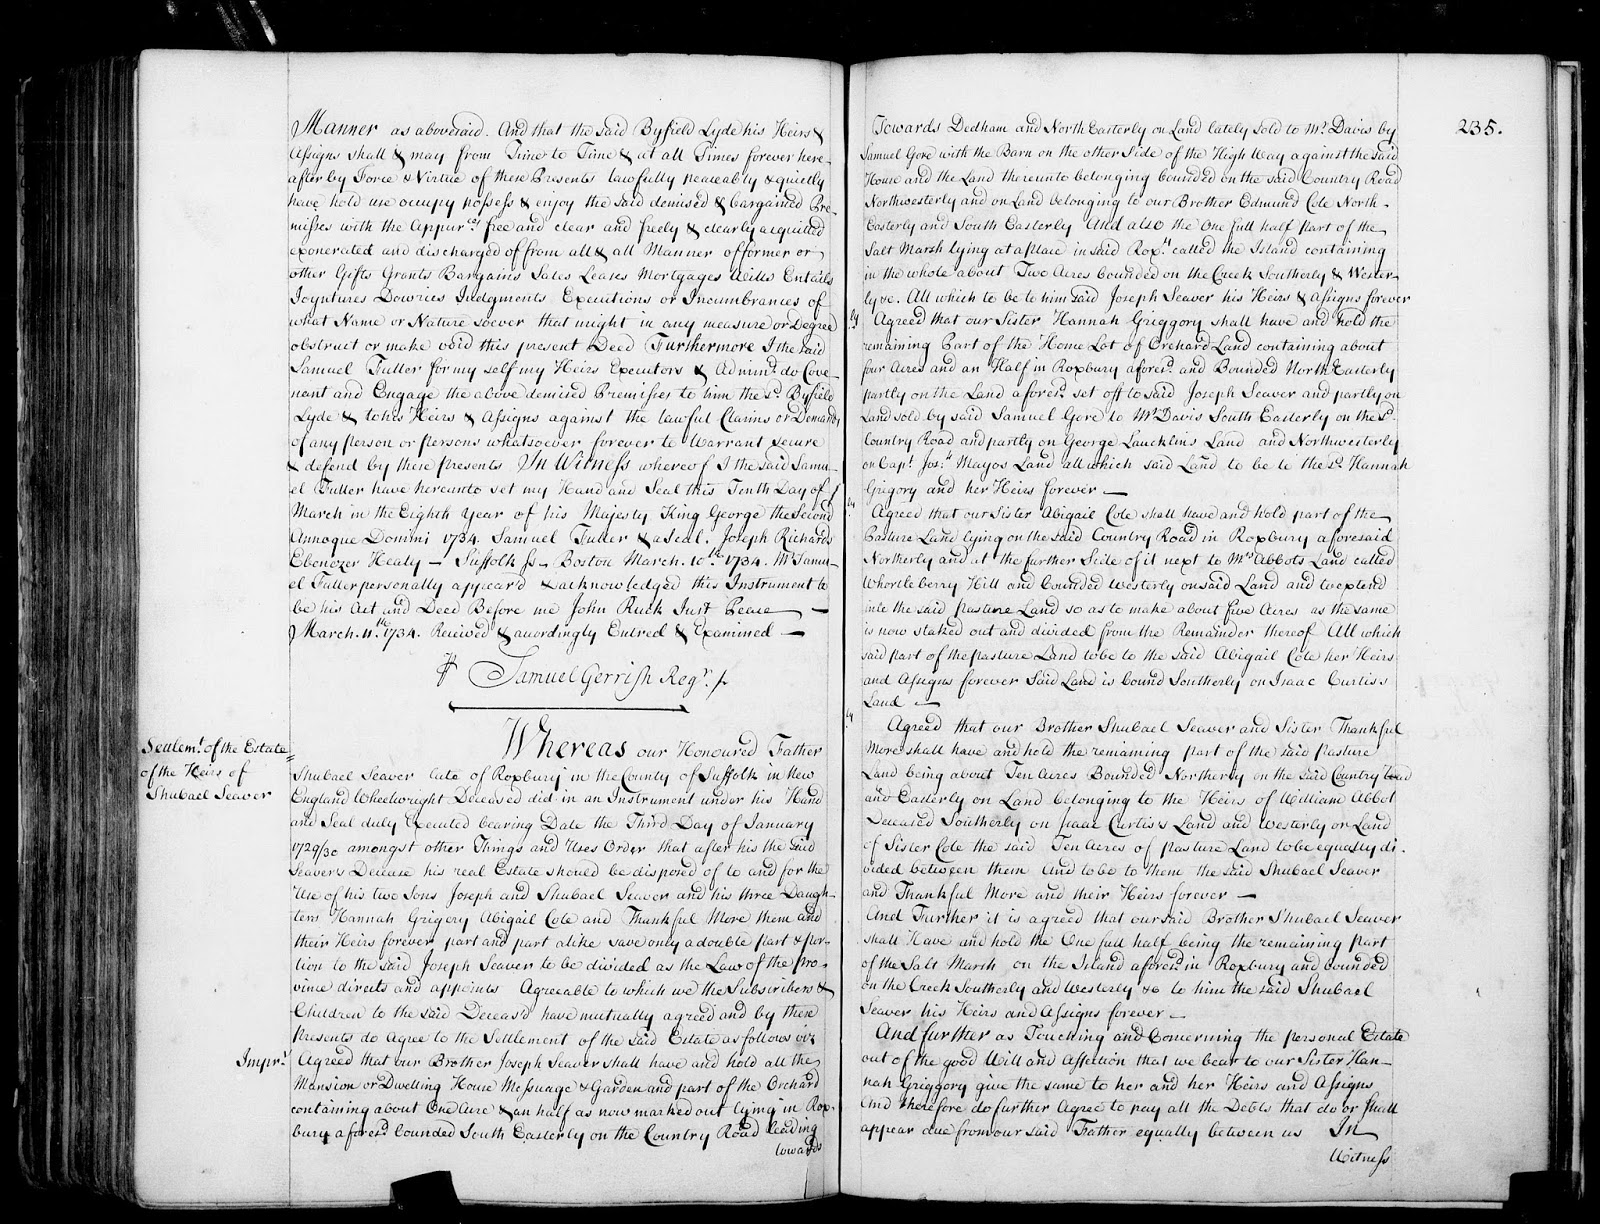 Manner as abovesaid. And that the said Byfield Lyde his Heirs &
Assigns shall & may from Time to Time & at all Times forever here-
after by Force & Virtue of these Presents lawfully peaceably & quietly
have hold use occupy possess & enjoy the said demised & bargained Pre-
misses with the Appurces free and clear and freely & clearly acquitted
exonerated and discharged of from all & all Manner of former or
other Gifts Grants Bargains Sales Leases Mortgages Wills Entails
Joyntures Dowries Judgments Executions or Incumbrances of
what Name or Nature soever that might in any measure or Degree
obstruct or make void this present Deed Furthermore I the said
Samuel Fuller for my self my Heirs Executors & Adminrs. do Cove-
nant and Engage the above demised Premisses to him the sd. Byfield
Lyde & to his Heirs & Assigns against the lawful Claims or Demands
of any person or persons whatsoever forever to Warrant secure
& defend by these presents In Witness whereof I the said Samu-
el Fuller have hereunto set my Hand and Seal this Tenth Day of
March in the Eighth Year of his Majesty King George the Second
Annoque Domini 1734. Samuel Fuller & a Seal. Joseph Richards
Ebenezer Healy — Suffolk Ss. Boston March. 10th. 1734. Mr Samu-
el Fuller personally appeard & acknowledged this Instrument to
be his Act and Deed Before me John Ruck Just Peace —
March. 11th. 1734. Received & accordingly Entred & Examined —
Samuel Gerrish Regr.
Settlemt. of the Estate
of the Heirs of
Shubael Seaver
Whereas our Honoured Father
Shubael Seaver late of Roxbury in the County of Suffolk in New
England Wheelwright Deceased did in an Instrument under his Hand
and Seal duly Executed bearing Date the Third Day of January
1729/30 amongst other Things and Uses Order that after his the said
Seavers Decease his real Estate should be disposed of to and for the
Use of his two Sons Joseph and Shubael Seaver and his three Daugh-
ters Hannah Grigory Abigail Cole and Thankful More them and
their Heirs forever part and part alike save only a double part & por-
tion to the said Joseph Seaver to be divided as the Law of the Pro-
vince directs and appoints Agreeable to which we the Subscribers &
Children to the said Deceasd have mutually agreed and by these
Presents do Agree to the Settlement of the said Estate as follows viz
Imprs. Agreed that our Brother Joseph Seaver shall have and hold all the
Mansion or Dwelling House Messuage & Garden and part of the Orchard
containing about One Acre & an half as now marked out lying in Rox-
bury aforesd. bounded South Easterly on the Country Road leading
towards
235.
Towards Dedham and North Easterly on Land lately sold to Mr. Davis by
Samuel Gore with the Barn on the other Side of the High Way against the said
House and the Land thereunto belonging bounded on the said Country Road
Northwesterly and on Land belonging to our Brother Edmund Cole North-
Easterly and South Easterly And also the One full half part of the
Salt Marsh lying at a place in said Roxy. called the Island containing
in the whole about Two Acres bounded on the Creek Southerly & Wester-
ly &c. All which to be to him said Joseph Seaver his Heirs & Assigns forever
Agreed that our Sister Hannah Griggory shall have and hold the
remaining Part of the Home Lot of Orchard Land containing about
four Acres and an Half in Roxbury aforesd. and Bounded North Easterly
partly on the Land aforesd. set off to said Joseph Seaver and partly on
Land sold by said Samuel Gore to Mr Davis South Easterly on the sd.
Country Road and partly on George Lancklins Land and Northwesterly
on Capt. Josh. Mayos Land all which said Land to be to the sd. Hannah
Grigory and her Heirs forever —
Agreed that our Sister Abigail Cole shall have and hold part of the
Pasture Land lying on the said Country Road in Roxbury aforesaid
Northerly and at the further Side of it next to Mrs Abbots Land called
Whortleberry Hill and bounded Westerly on said Land and to extend
into the said Pasture Land so as to make about five Acres as the same
is now staked out and divided from the Remainder thereof All which
said part of the pasture Land to be to the said Abigail Cole her Heirs
and Assigns forever Said Land is bound Southerly on Isaac Curtiss
Land —
Agreed that our Brother Shubael Seaver and Sister Thankful
More shall have and hold the remaining part of the said Pasture
Land being about Ten Acres Bounded Northerly on the said Country Road
and Easterly on Land belonging to the Heirs of William Abbot
Deceased Southerly on Isaac Curtiss Land and Westerly on Land
of Sister Cole the said Ten Acres of Pasture Land to be equally di-
vided between them And to be to them the said Shubael Seaver
and Thankful More and their Heirs forever —
And Further it is agreed that our said Brother Shubael Seaver
shall Have and hold the One full half being the remaining part
of the Salt Marsh on the Island aforesd in Roxbury and bounded
on the Creek Southerly and Westerly &c to him the said Shubael
Seaver his Heirs and Assigns forever —
And further as Touching and Concerning the Personal Estate
out of the good Will and Affection that we bear to our Sister Han-
nah Griggory give the same to her and her Heirs and Assigns
And therefore do further Agree to pay all the Debts that do or shall
appear due from our said Father equally between us In
Witness